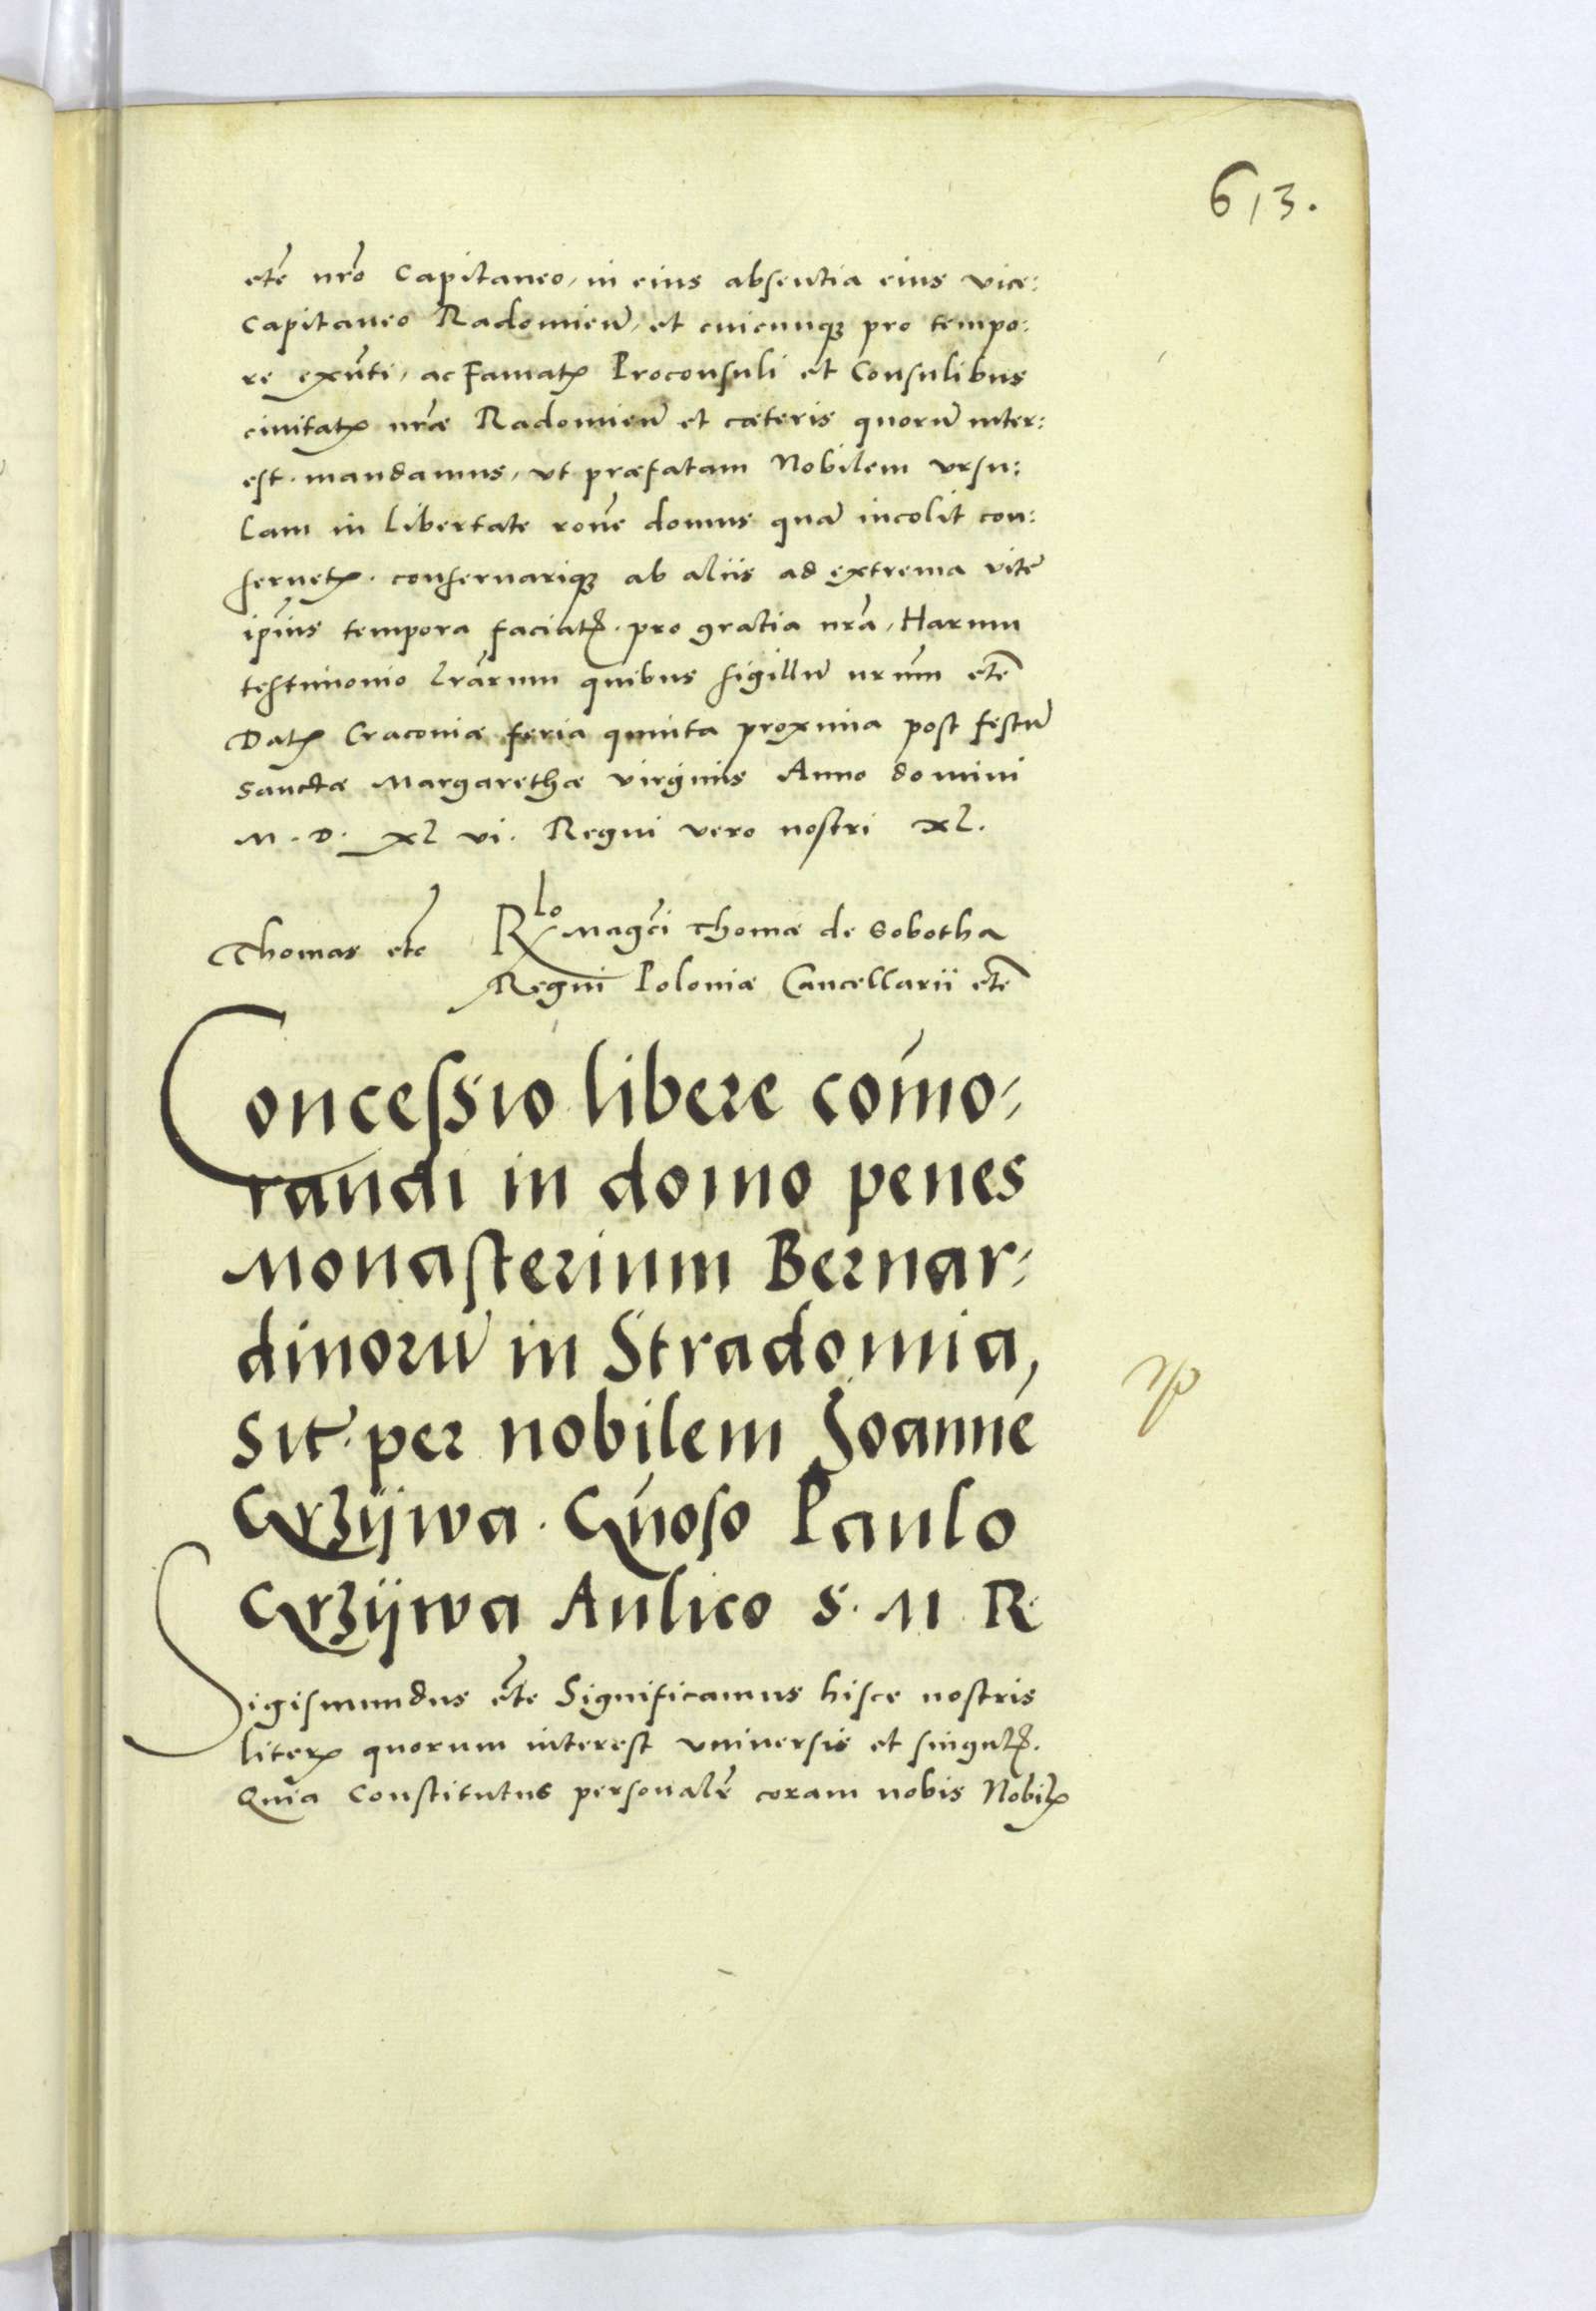 613.
etc̃ nr̃o Capitaneo, in eius absentia eius vice:
Capitaneo Radomieñ, et cuicunqꝫ pro tempo:
re exñti, ac Famatꝭ Proconsuli et Consulibus
civitatꝭ nr̃æ Radomieñ et cæteris quorũ inter:
est. mandamus, ut præfatam Nobilem Ursu:
lam in libertate roñe domus quã incolit con:
servetꝭ. conservariqꝫ ab aliis ad extrema vite
ip̃ius tempora faciatꝭ. pro gratia nr̃a, Harum
testimonio lr̃arum quibus sigillũ nr̃um etc̃
Datꝭ Cracoviæ feria quinta proxima post festũ
Sanctæ Margarethæ virginis Anno domini
M. D. xl vi. Regni vero nostri xl.
Thomas etc
Rlo Magc̃i Thomæ de Sobotha
Regni Poloniæ Cancellarii etc̃
Concessio libere com̃o:
randi in domo penes
Monasterium Bernar:
dinorũ in Stradomia,
sit̃. per nobilem Joannẽ
Crzÿwa. Gñoso Paulo
Crzÿwa Aulico S. M. R.
Sigismundus etc̃ Significamus hisce nostris
literꝭ quorum interest universis et singulꝭ.
Quia Constitutus personalr̃ coram nobis Nobilꝭ